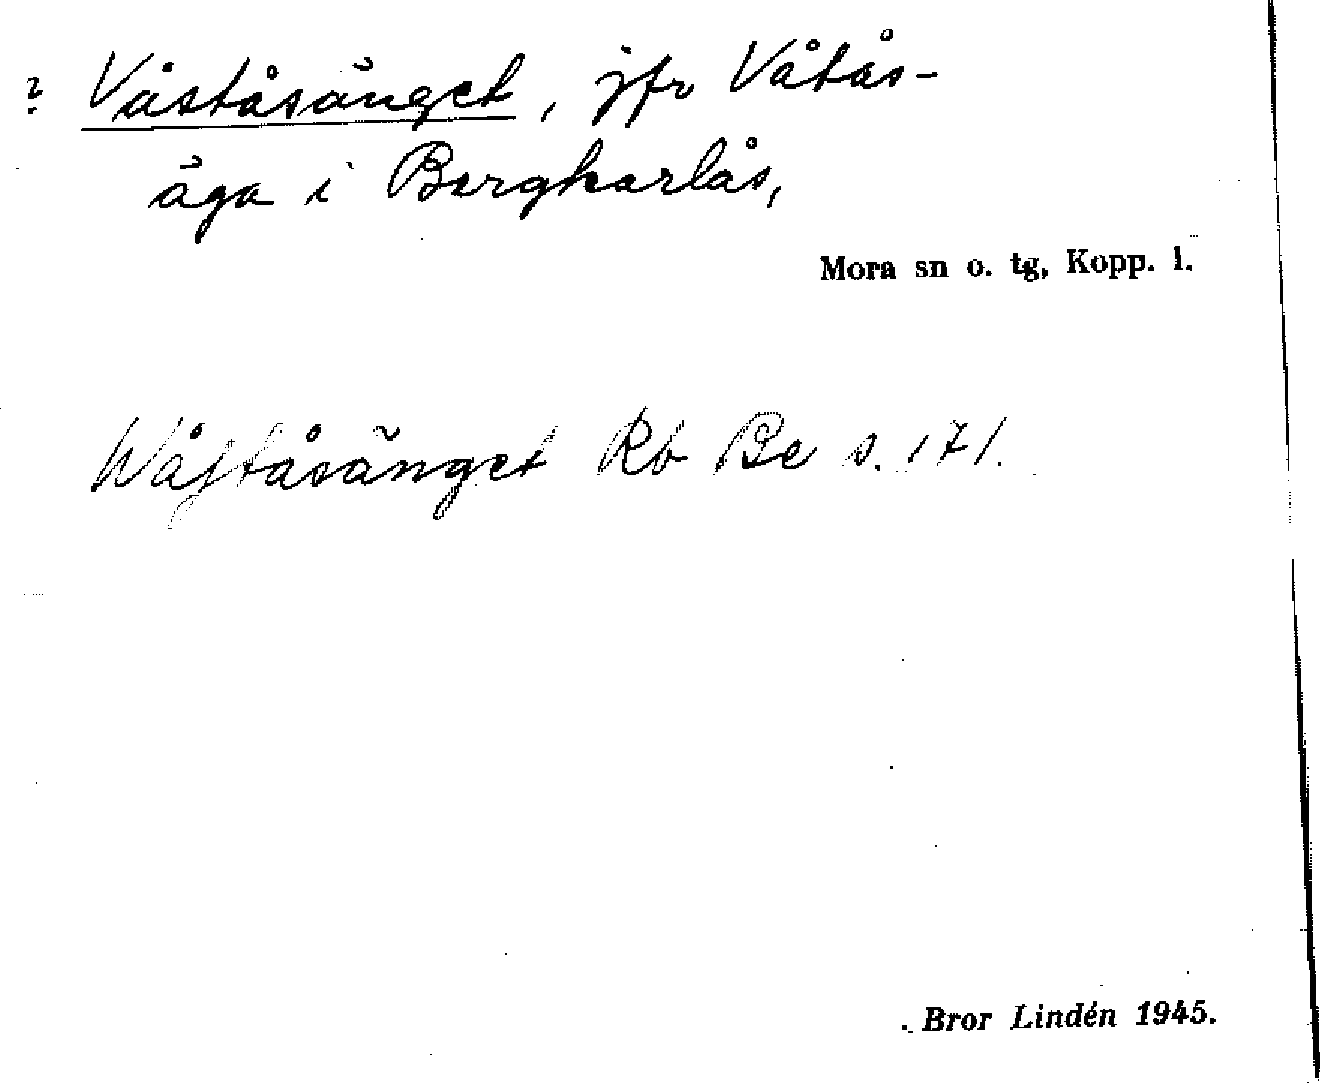 ? Våståsänget, jfr Våtås-
äga i Bergkarlås,
Mora sn o. tg, Kopp. l.
Wåſtåsänget Rb Be s. 171.
Bror Lindén 1945.